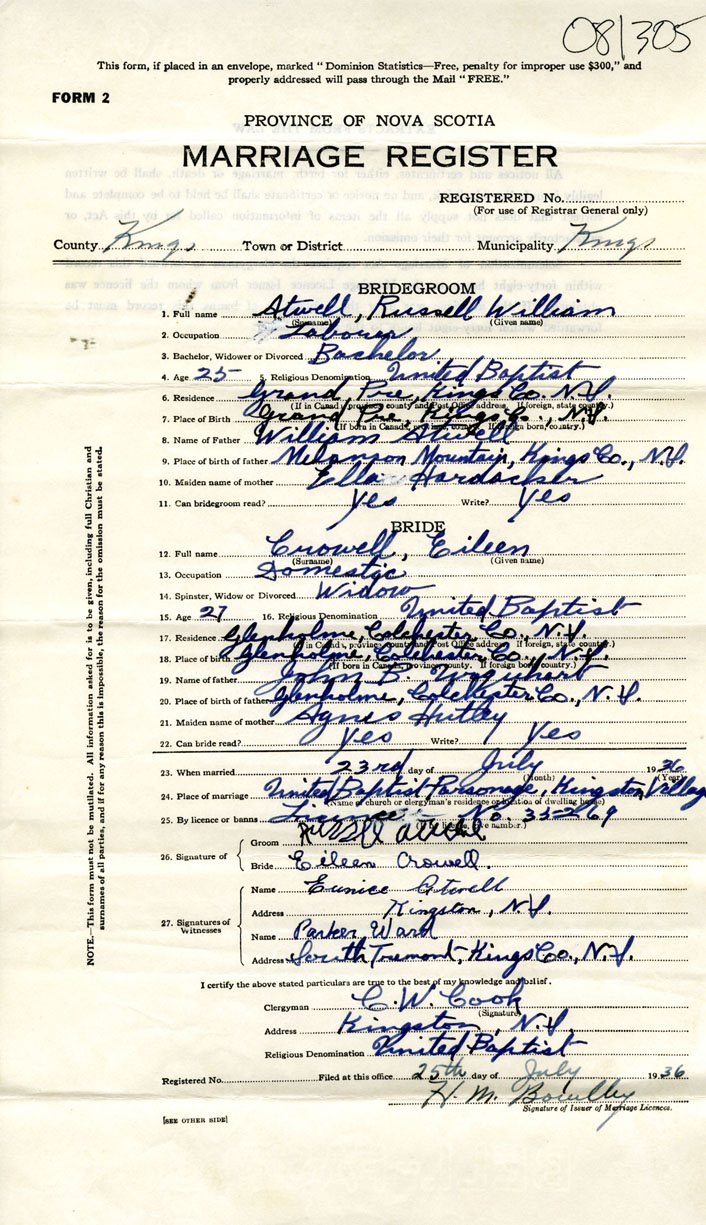 08/305
This form, if placed in an envelope, marked "Dominion Statistics—Free, penalty for improper use $300," and
properly addressed will pass through the Mail "FREE."
FORM 2
PROVINCE OF NOVA SCOTIA
MARRIAGE REGISTER
REGISTERED No.
(For use of Registrar General only)
County Kings Town or District Municipality Kings
BRIDEGROOM
1. Full name Atwell, Russell William
(Surname) (Given name)
2. Occupation Labourer
3. Bachelor, Widower or Divorced Bachelor
4. Age 25 5. Religious Denomination United Baptist
6. Residence Grand Pre, Kings Co. N.S.
(If in Canada, province, county and Post Office address. If foreign, state country.)
7. Place of Birth Grand Pre, Kings Co., N.S.
(If born in Canada, province, county. If foreign born, country.)
8. Name of Father William Atwell
9. Place of birth of father Melanson Mountain, Kings Co., N.S.
10. Maiden name of mother Ella Hardacker
11. Can bridegroom read? Yes Write? Yes
BRIDE
12. Full name Crowell, Eileen
(Surname) (Given name)
13. Occupation Domestic
14. Spinster, Widow or Divorced Widow
15. Age 27 16. Religious Denomination United Baptist
17. Residence Glenholme, Colchester Co., N.S.
(If in Canada, province, county and Post Office address. If foreign, state country.)
18. Place of birth Glenholme, Colchester Co., N.S.
(If born in Canada, province, county. If foreign born, country.)
19. Name of father John B. Urquhart
20. Place of birth of father Glenholme, Colchester Co., N.S.
21. Maiden name of mother Agnes Hutley
22. Can bride read? Yes Write? Yes
23. When married 23rd day of July 1936
(Month) (Year)
24. Place of marriage United Baptist Parsonage, Kingston Village
(Name of church or clergyman's residence or location of dwelling home)
25. By licence or banns Licence No. 33269
26. Signature of
Groom Russell Atwell
Bride Eileen Crowell.
27. Signatures of Witnesses
Name Eunice Atwell
Address Kingston, N.S.
Name Parker Ward
Address South Tremont, Kings Co., N.S.
I certify the above stated particulars are true to the best of my knowledge and belief.
Clergyman C. W. Cook
(Signature)
Address Kingston, N.S.
Religious Denomination United Baptist
Registered No. Filed at this office 25th day of July 1936
H. M. Bowlby
Signature of Issuer of Marriage Licences.
[SEE OTHER SIDE]
NOTE.—This form must not be mutilated. All information asked for is to be given, including full Christian and
surnames of all parties, and if for any reason this is impossible, the reason for the omission must be stated.